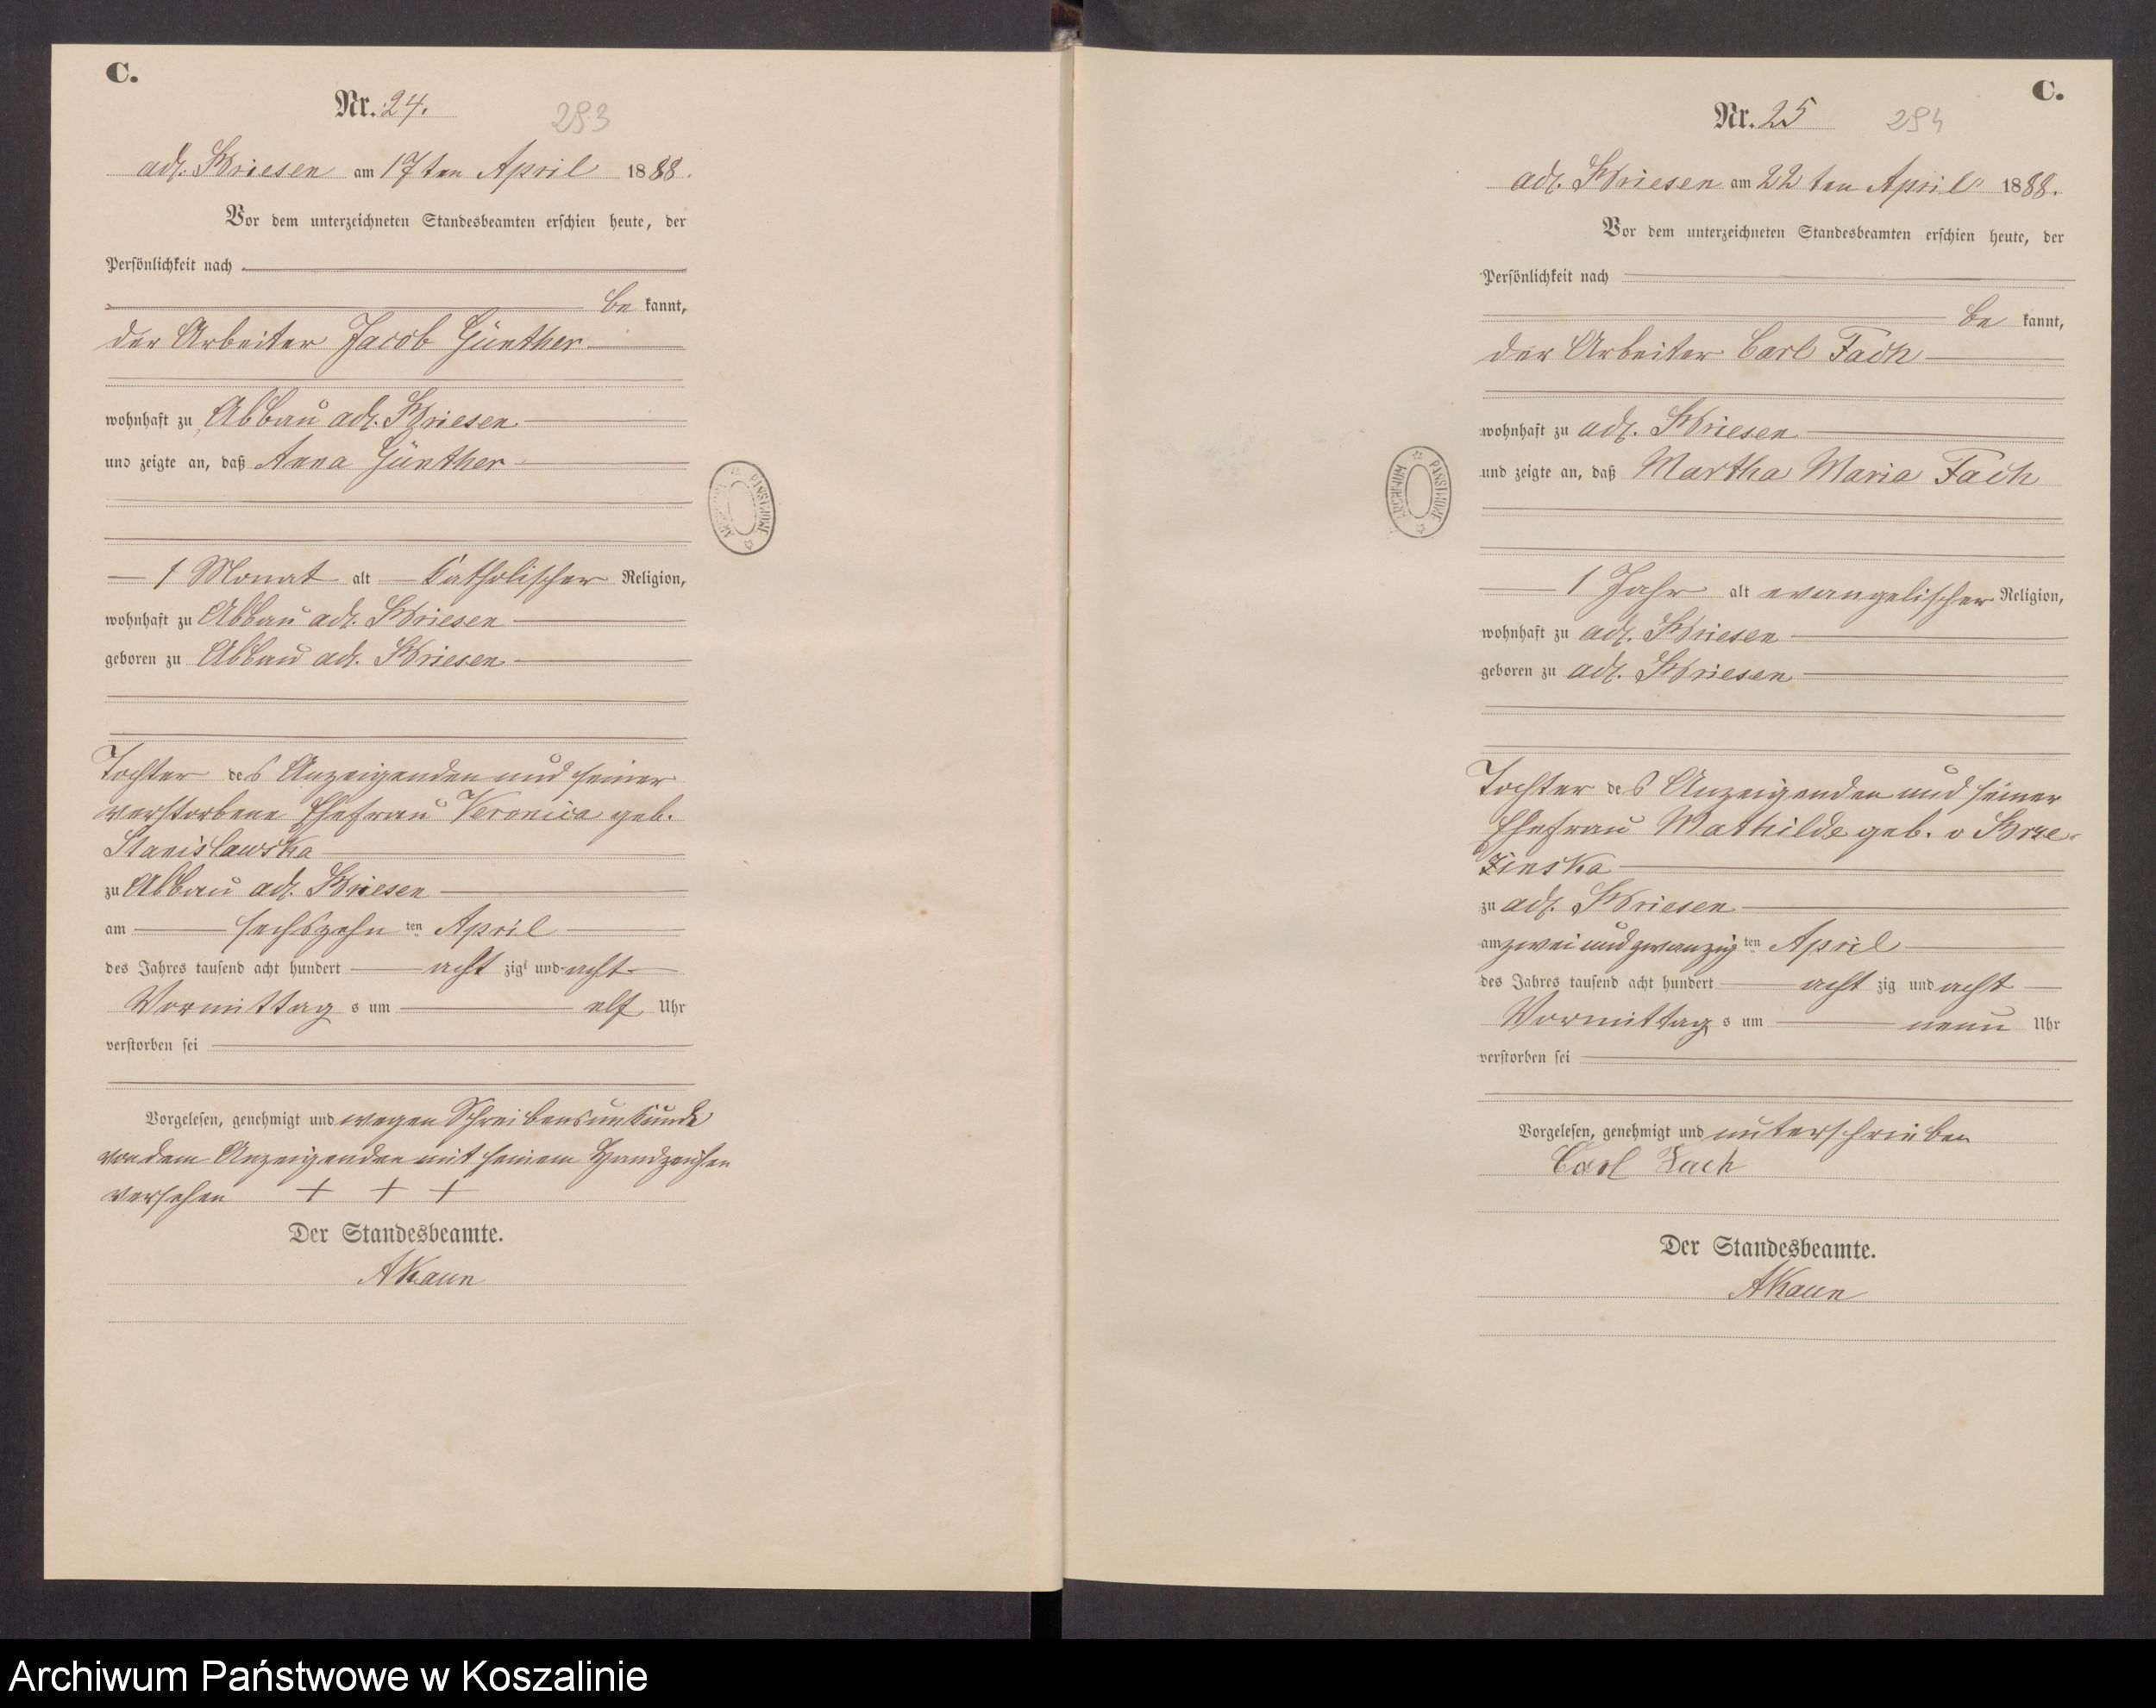 C.
Nr. 24.
293
adl. Briesen am 17ten April 1888.
Vor dem unterzeichneten Standesbeamten erschien heute, der
Persönlichkeit nach
be kannt,
der Arbeiter Jacob Günther
wohnhaft zu Abbau adl. Briesen
und zeigte an, daß Anna Günther
1 Monat alt katholischer Religion,
wohnhaft zu Abbau adl. Briesen
geboren zu Abbau adl. Briesen
Tochter des Anzeigenden und seiner
verstorbene Ehefrau Veronica geb.
Stanislawska
zu Abbau adl. Briesen
am sechszehn ten April
des Jahres tausend acht hundert acht zig und acht
Vormittag s um elf Uhr
verstorben sei
Vorgelesen, genehmigt und wegen Schreibensunkunde
von dem Anzeigenden mit seinem Handzeichen
versehen + + +
Der Standesbeamte.
AKaun
ARCHIWUM PAŃSTWOWE
C.
Nr. 25
294
adl. Briesen am 22ten April 1888.
Vor dem unterzeichneten Standesbeamten erschien heute, der
Persönlichkeit nach
be kannt,
der Arbeiter Carl Fach
wohnhaft zu adl. Briesen
und zeigte an, daß Martha Maria Fach
1 Jahr alt evangelischer Religion,
wohnhaft zu adl. Briesen
geboren zu adl. Briesen
Tochter des Anzeigenden und seiner
Ehefrau Mathilde geb. v Brze-
zinska
zu adl. Briesen
am zwei und zwanzig ten April
des Jahres tausend acht hundert acht zig und acht
Vormittag s um neun Uhr
verstorben sei
Vorgelesen, genehmigt und unterschrieben
Carl Fach
Der Standesbeamte.
AKaun
ARCHIWUM PAŃSTWOWE
Archiwum Państwowe w Koszalinie